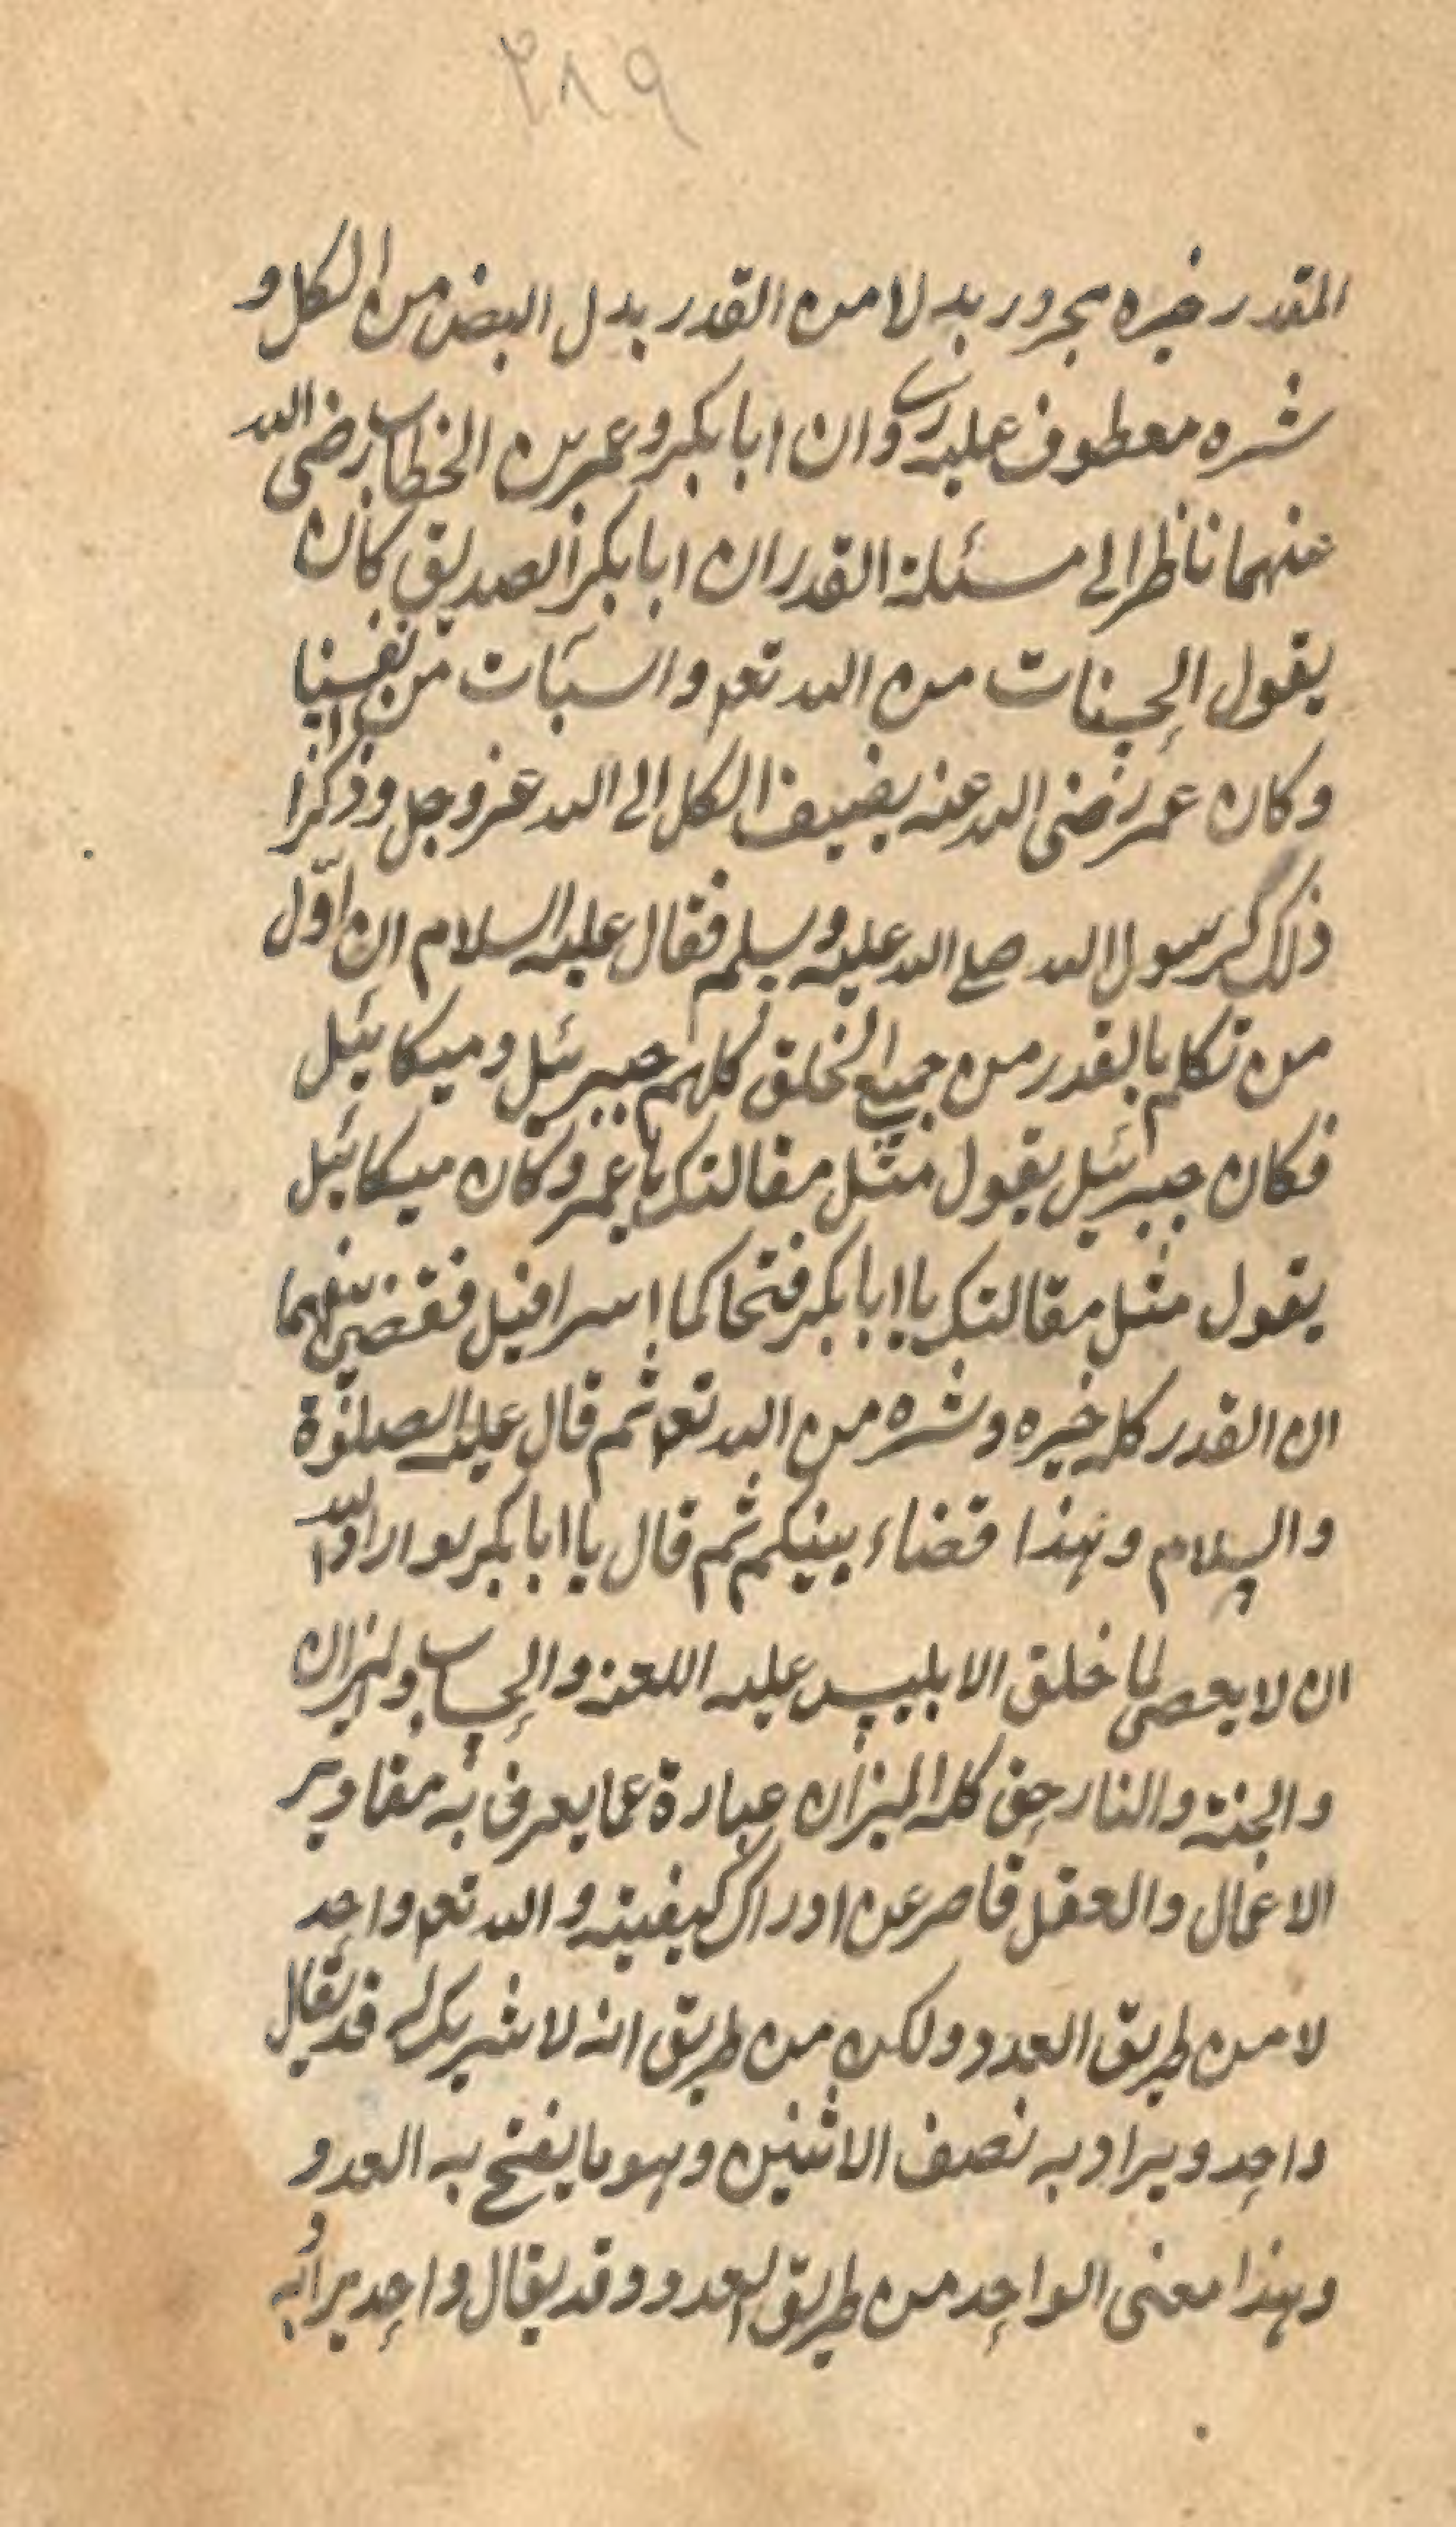 ٢٨٩
المقدر خيره مجرور بدلا من القدر بدل البعض من الكل و
شره معطوف عليه وان ابا بكر وعمر بن الخطاب رضى الله
عنهما ناظرا لى مسئلة القدر ان ابا بكر الصديق كان
يقول الحسنات من الله تعم والسيآت من انفسنا
وكان عمر رضى الله عنه يضيف الكل الى الله عز وجل وذكرا
ذلك لرسول الله صلى الله عليه وسلم فقال عليه السلام ان اوّل
من تكلم بالقدر من جميع الخلق كلهم جبرئيل وميكائيل
فكان جبرئيل يقول مثل مقالتك يا عمر وكان ميكائيل
يقول مثل مقالتك يا ابا بكر فتحاكما اسرافيل فقضى بينهما
ان القدر كله خيره وشره من الله تعم ثم قال عليه الصلوة
والسلام وهذا قضاء بينكم ثم قال يا ابا بكر لو اراد الله
ان لا يعصى لما خلق الابليس عليه اللعنه والحساب والميزان
والجنة والنار حق كله الميزان عبارة عما يعرف به مقادير
الاعمال والعقل قاصر عن ادراك كيفيته والله تعم واحد
لا من طريق العدد ولكن من طريق انه لا شريك له قد يقال
واحد ويراد به نصف الاثنين وهو ما يفتح به العدد
وهذا معنى الواحد من طريق العدد وقد يقال واحد يراد به